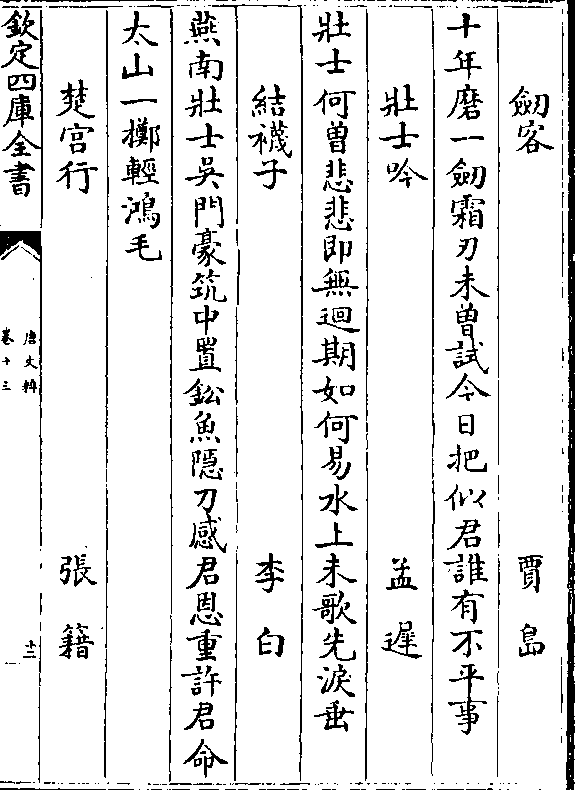 劔客　賈島
十年磨一劔霜刃未曽試今日把似君誰有不平事
壯士吟　孟遲
壯士何曽悲悲即無迴期如何易水上未歌先淚垂
結襪子　李白
燕南壯士吳門豪筑中置鈆魚隱刀感君恩重許君命
太山一擲輕鴻毛
楚宫行　張籍
欽定四庫全書
唐文粹
卷十三
十二